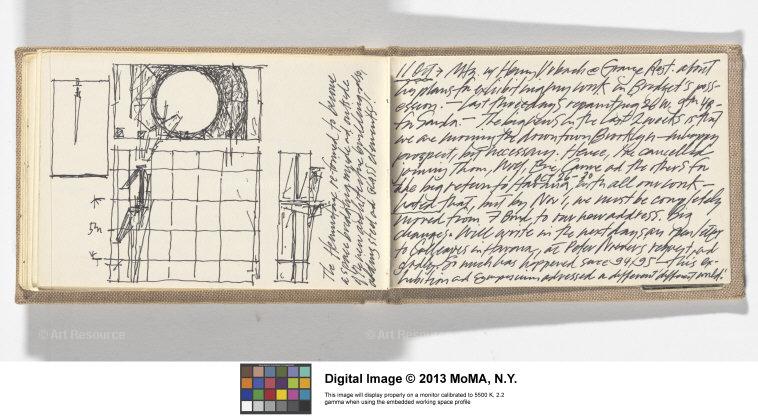 5m
The Hemming, is turned, to become
a space building made out outside
adding steel and glass elements!
11 Oct → Mtg. w Henry Urbach @ Grange Rest. about
his plans to exhibit my work in Brodket's poss-
ession. – Last three days repainting 26 W. 9th 4R –
for Sandra. – The big news in the last 2 weeks is that
we are moving the downtown Brooklyn – unhappy
prospect, but necessary. Hence, the cancelled
joining Thom, Wolf, Eric, Carme and the others for
the big return to Havana, with all our work –
hated that, but by Nov 1, we must be completely
moved from 7 Bond to our new address. Big
changes. Will write in the next days an open letter
to colleagues in Havana, at Peter Noever's request and
gladly. So much has happened since 94/95! This ex-
hibition and symposium addressed a different different world!
© Art Resource
© Art Resource
Digital Image © 2013 MoMA, N.Y.
This image will display properly on a monitor calibrated to 5500 K, 2.2
gamma when using the embedded working space profile